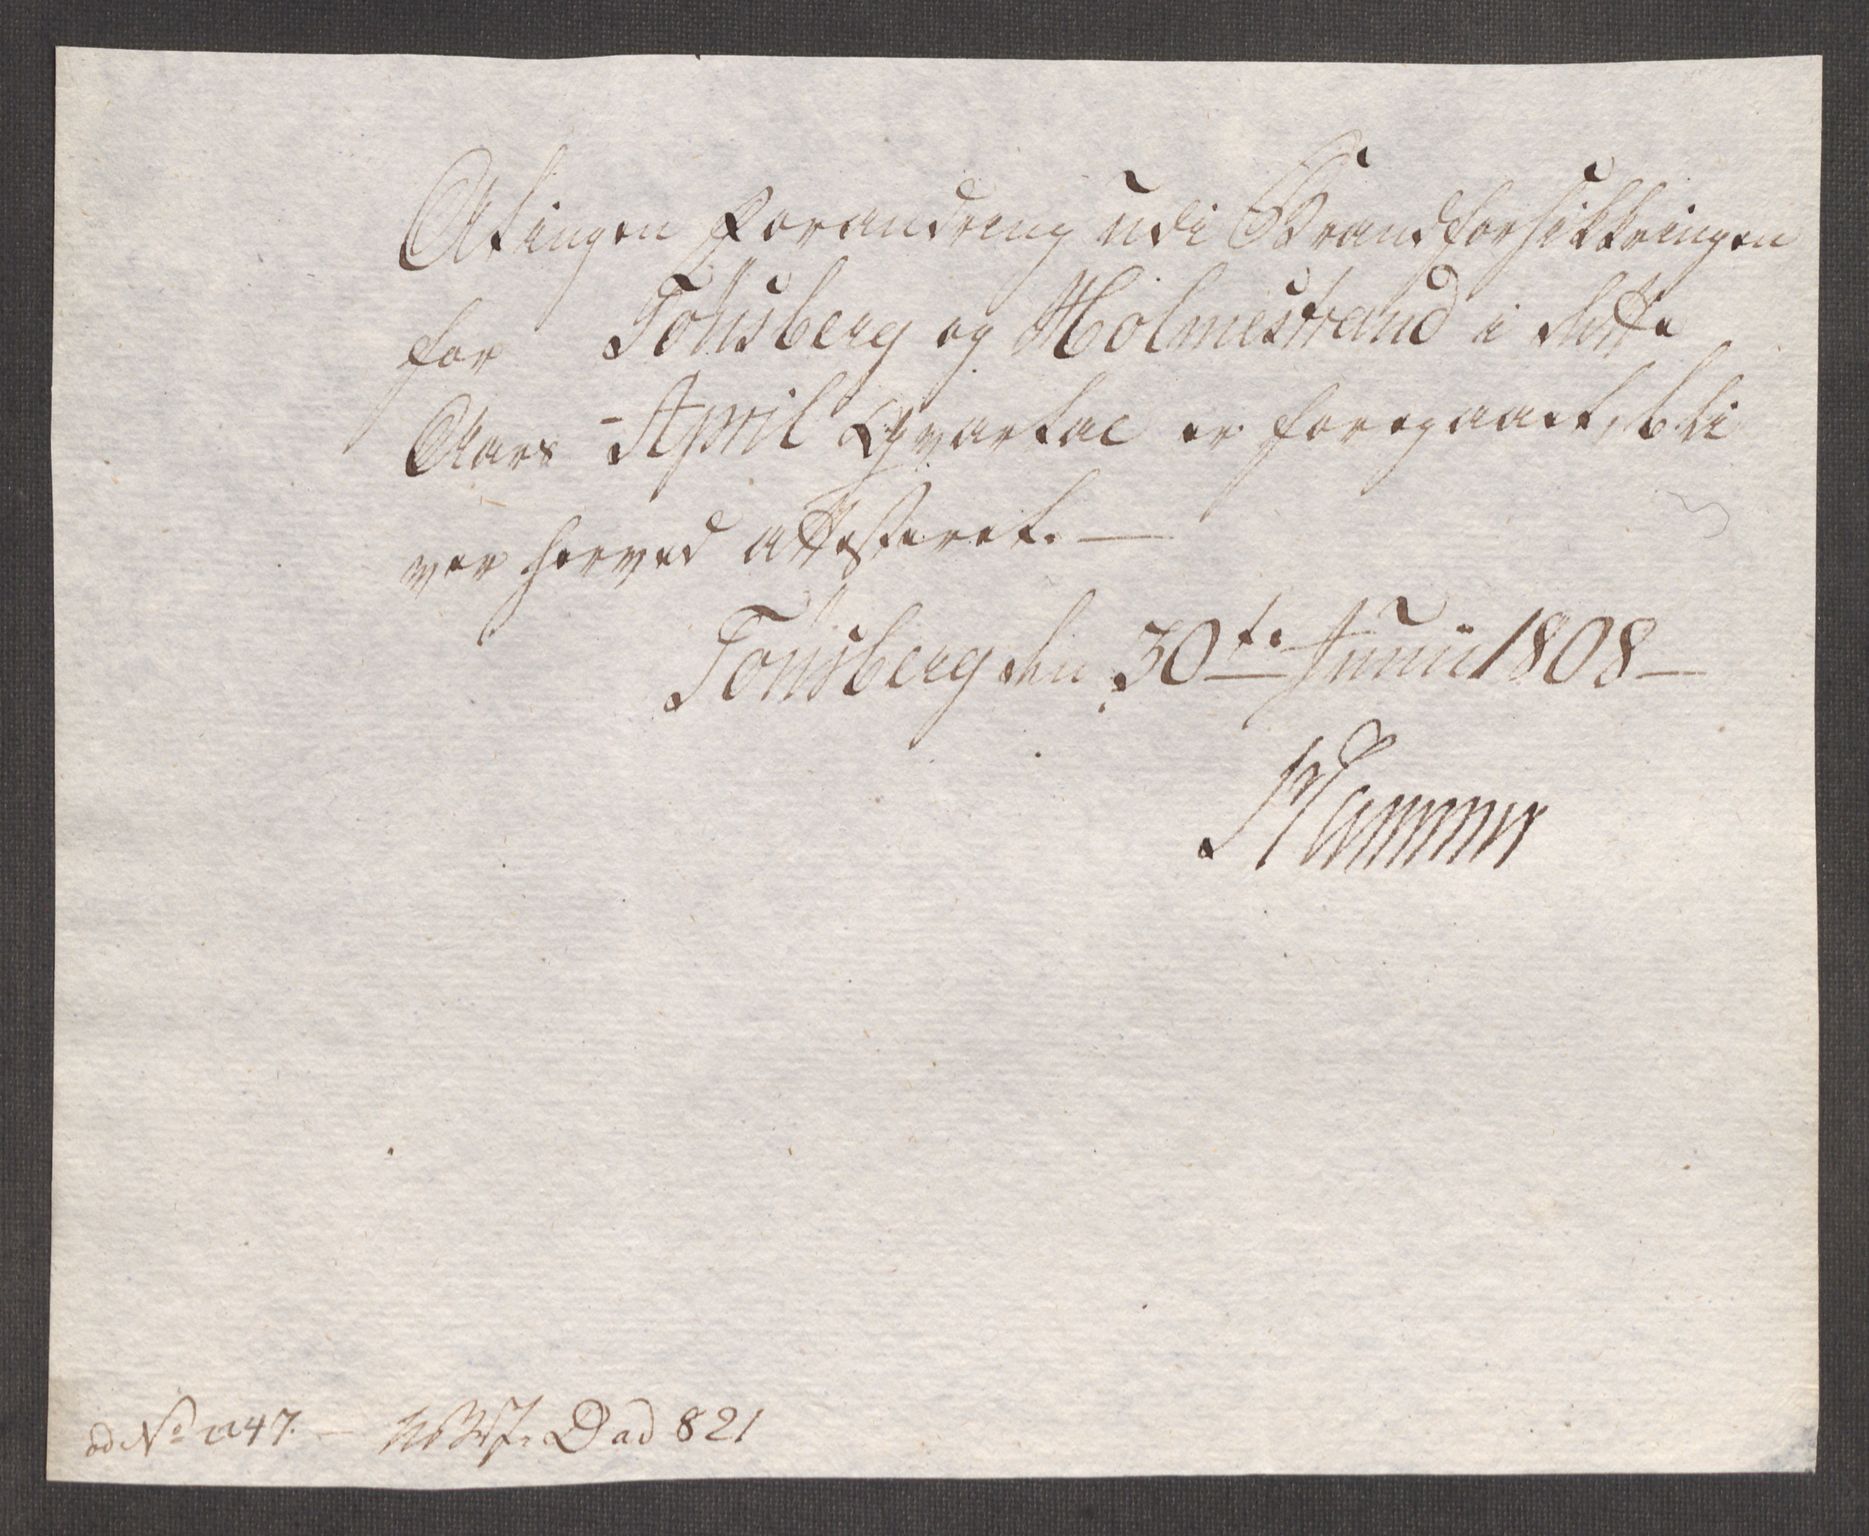 At ingen Forandring udi Brandforsikkringen
for Tönsberg og Holmestrand i dette
Aars April Qvartal er foregaaet, bli
ver herved attesteret. —
Tönsberg den 30te Junii 1808 —
Hammer
ad No 47. — Dad 821